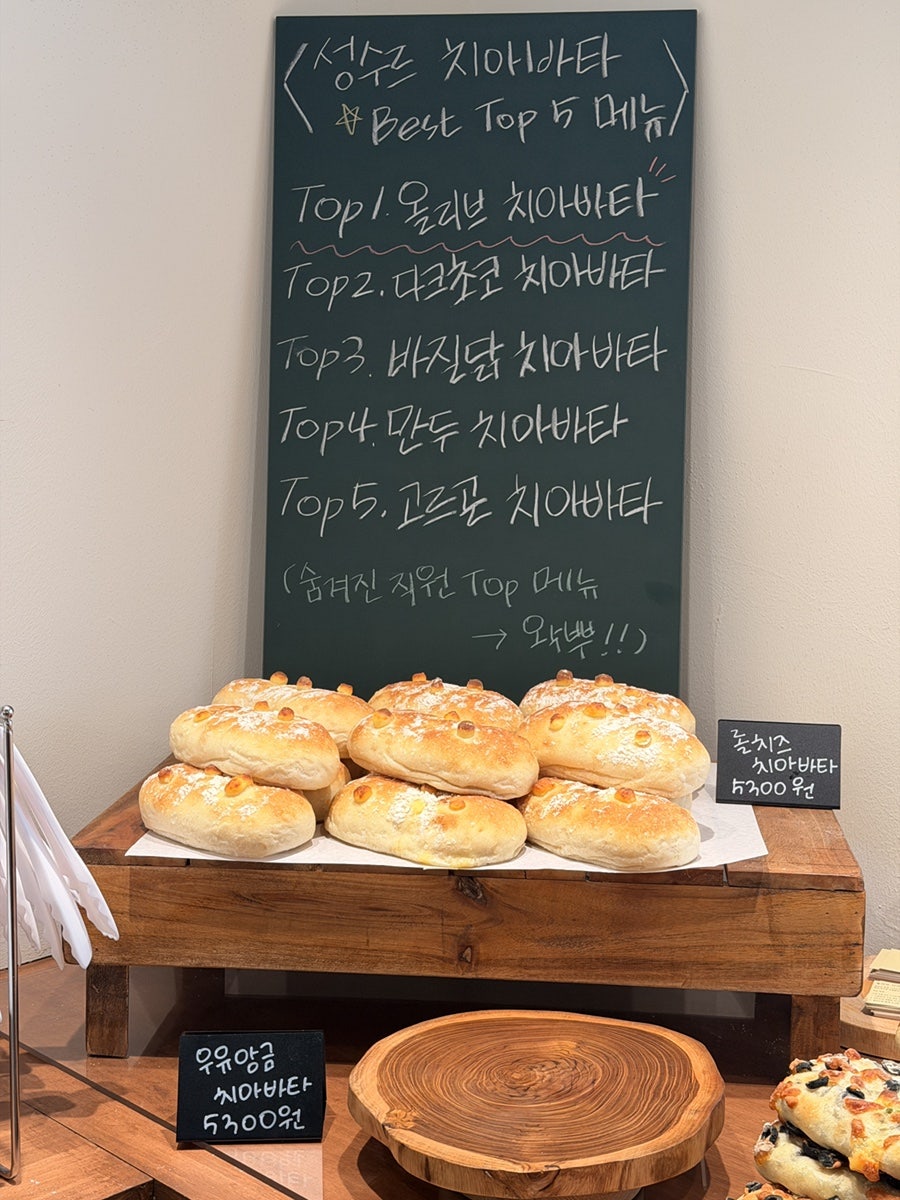 <성수르 치아바타
☆Best Top 5 메뉴>
Top1. 올리브 치아바타
Top2. 다크초코 치아바타
Top3. 바질닭 치아바타
Top4. 만두 치아바타
Top5. 고르곤 치아바타
(숨겨진 직원 Top 메뉴
→ 왁뿌!!)
롤치즈
치아바타
5300원
우유앙금
치아바타
5300원